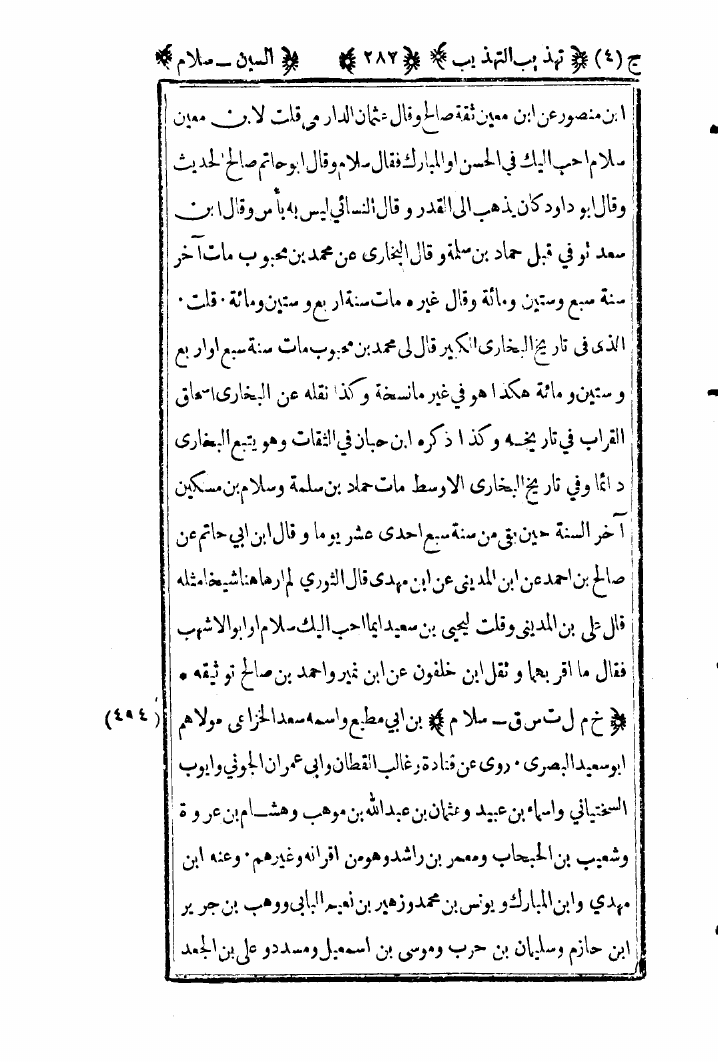 ج (٤) تهذيب التهذيب ٢٨٧ السين ـ سلام
ابن منصور عن ابن معين ثقة صالح وقال عثمان الدارمي قلت لابن معين
سلام احب اليك في الحسن او المبارك فقال سلام وقال ابو حاتم صالح الحديث
وقال ابو داود كان يذهب الى القدر و قال النسائي ليس به بأس وقال ابن
سعد توفي قبل حماد بن سلمة و قال البخارى عن محمد بن محبوب مات آخر
سنة سبع وستين ومائة وقال غيره مات سنة اربع و ستين ومائة ٠ قلت ٠
الذى فى تاريخ البخارى الكبير قال لى محمد بن محبوب مات سنة سبع او اربع
و ستين و مائة هكذا هو في غير ما نسخة وكذا نقله عن البخارى اسحاق
القراب في تاريخه وكذا ذكره ابن حبان في الثقات وهو يتبع البخارى
دائما وفي تاريخ البخارى الاوسط مات حماد بن سلمة وسلام بن مسكين
آخر السنة حين بقى من سنة سبع احدى عشر يوما و قال ابن ابي حاتم عن
صالح بن احمد عن ابن المدينى عن ابن مهدى قال الثوري لم ار هاهنا شيخا مثله
قال على بن المدينى وقلت ليحيى بن سعيد ايما احب اليك سلام او ابو الاشهب
فقال ما اقربهما و نقل ابن خلفون عن ابن نمير واحمد بن صالح توثيقه *
(٤٩٤) خ م ل ت س ق ـ سلام بن ابي مطيع واسمه سعد الخزاعى مولاهم
ابو سعيد البصرى ٠ روى عن قتادة وغالب القطان وابى عمران الجوني وايوب
السختياني واسماء بن عبيد وعثمان بن عبد الله بن موهب وهشام بن عروة
وشعيب بن الحبحاب ومعمر بن راشد وهو من اقرانه وغيرهم ٠ وعنه ابن
مهدي وابن المبارك و يونس بن محمد و زهير بن نعيم البابى ووهب بن جرير
ابن حازم وسليمان بن حرب وموسى بن اسمعيل ومسدد و على بن الجعد